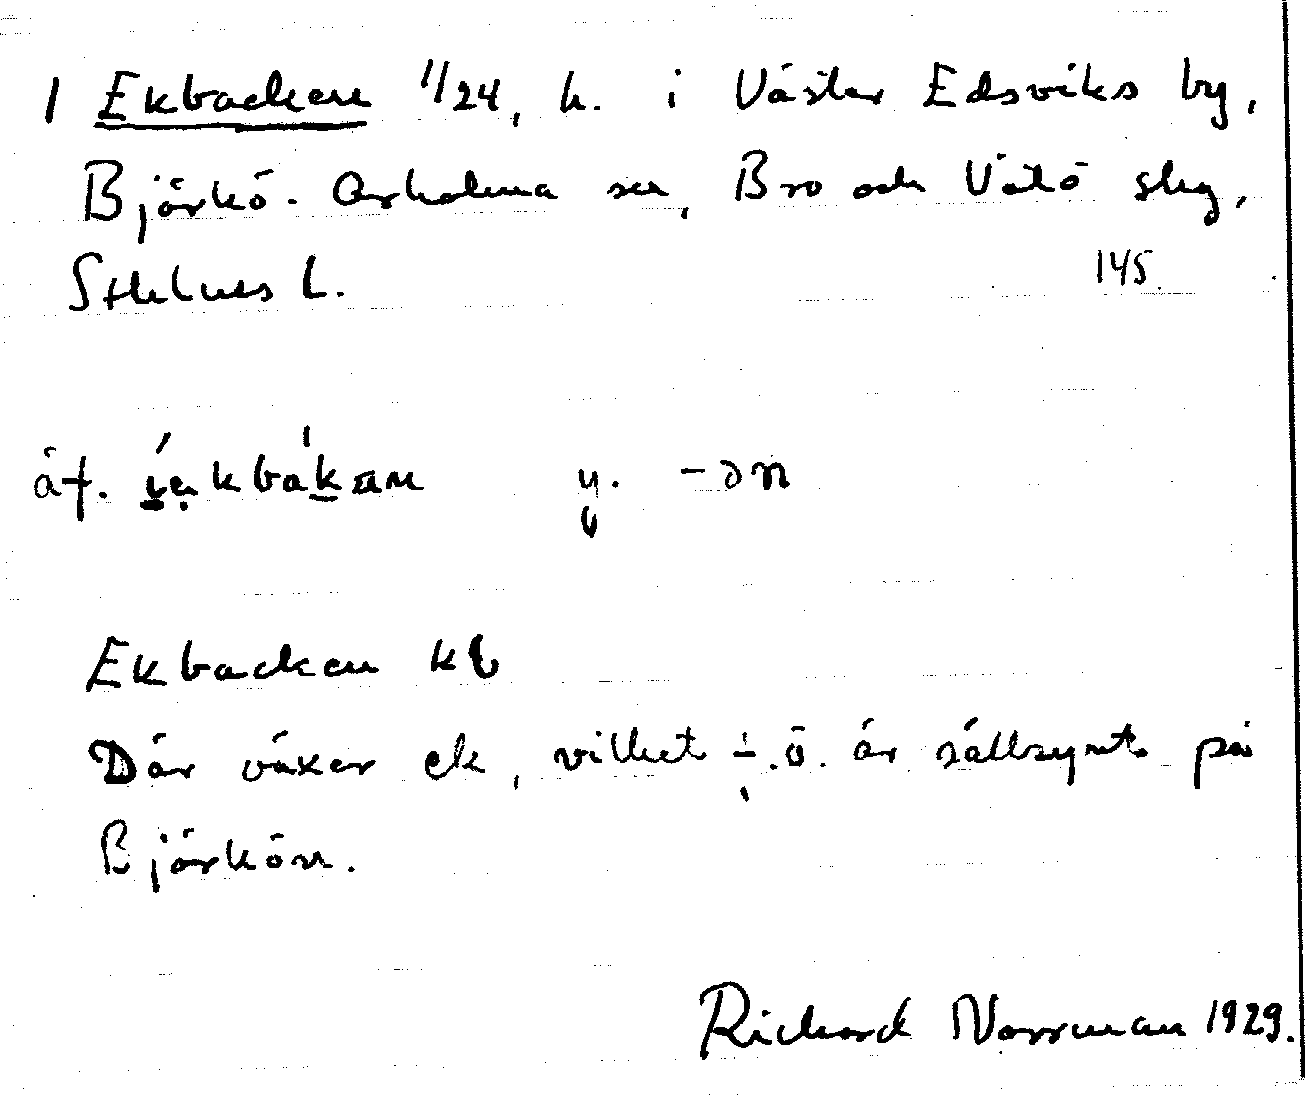 1 Ekbacken 1/24, h. i Väster Edsviks by,
Björkö-Arholma sn, Bro och Vätö slg,
Sthlms l.
145
åf. y. -ən
Ekbacken kb
Där växer ek, vilket .ö. är sällsynt på
Björkön.
Richard Norrman 1929.